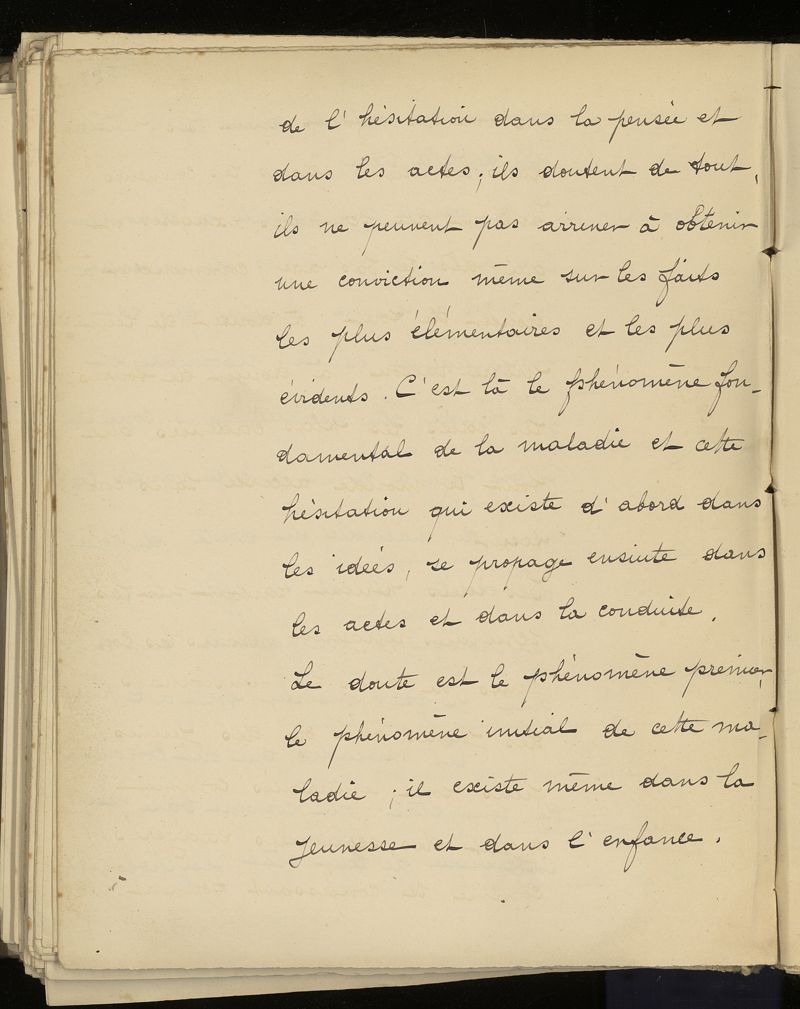 de l'hésitation dans la pensée et
dans les actes ; ils doutent de tout,
ils ne peuvent pas arriver à obtenir
une conviction même sur les faits
les plus élémentaires et les plus
évidents. C'est là le phénomène fon-
damental de la maladie et cette
hésitation qui existe d'abord dans
les idées, se propage ensuite dans
les actes et dans la conduite.
Le doute est le phénomène premier,
le phénomène initial de cette ma-
ladie ; il existe même dans la
jeunesse et dans l'enfance.